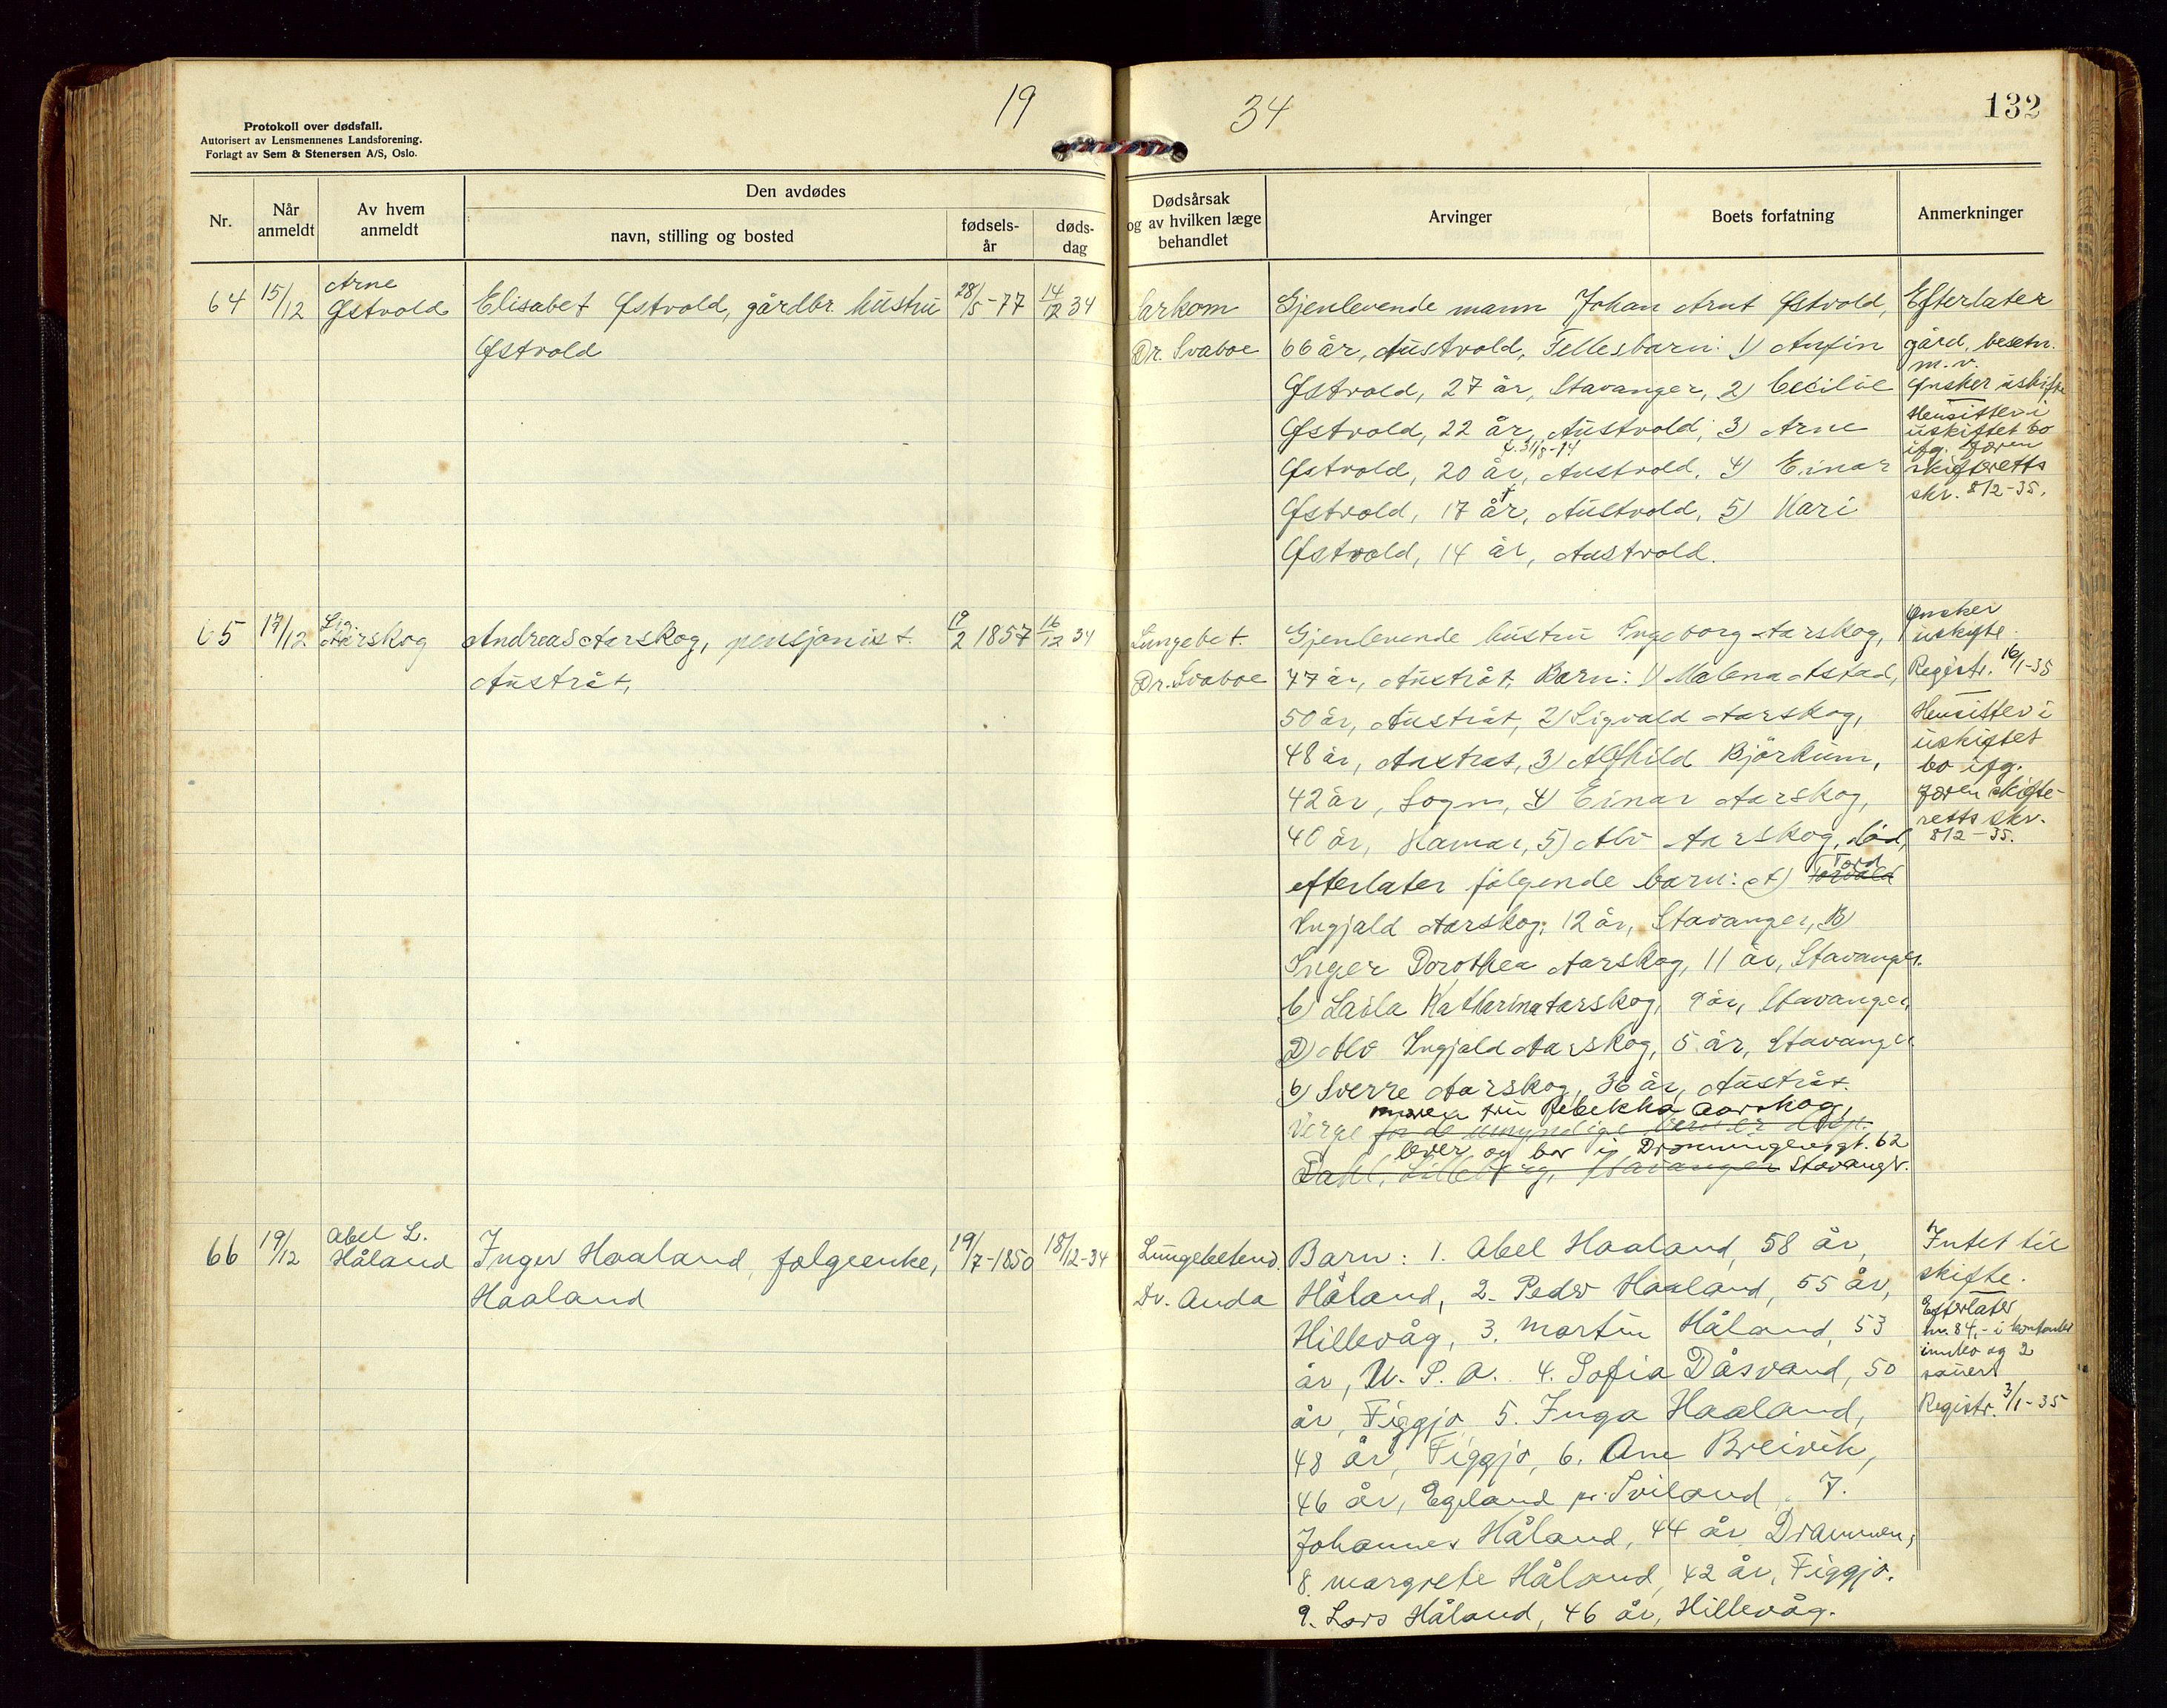 19 34
132
Protokoll over dødsfall.
Autorisert av Lensmennenes Landsforening.
Forlagt av Sem & Stenersen A/S, Oslo.
Nr.
Når anmeldt
Av hvem anmeldt
Den avdødes
navn, stilling og bosted
fødsels-
år
døds-
dag
Dødsårsak
og av hvilken læge
behandlet
Arvinger
Boets forfatning
Anmerkninger
64 15/12 Arne
Østvold
Elisabet Østvold, gårdbr. hustru
Østvold
28/5-77
14/12 34
Sarkom
Dr. Svaboe
Gjenlevende mann Johan Arnt Østvold,
66 år, Austvold, Fellesbarn: 1) Anfin
Østvold, 27 år, Stavanger, 2) Cecilie
Østvold, 22 år, Austvold, 3) Arne
f. 31/8-14
Østvold, 20 år, Austvold, 4) Einar
Østvold, 17 år, Austvold, 5) Kari
Østvold, 14 år, Austvold.
Efterlater
gård, besetn.
m.v.
Ønsker uskifte
Hensitter i
uskiftet bo
ifg. Jæren
skifteretts
skr. 8/2-35.
65 17/12 Sig.
Aarskog
Andreas Aarskog, pensjonist.
Austråt,
19/2 1857
16/12 34
Lungebet.
Dr. Svaboe
Gjenlevende hustru Ingeborg Aarskog,
77 år, Austråt. Barn: 1) Malena Astad,
50 år, Austråt, 2) Sigvald Aarskog,
48 år, Austråt, 3) Alfhild Bjørkum,
42 år, Sogn, 4) Einar Aarskog,
40 år, Hamar, 5) Alv Aarskog, død,
efterlater følgende barn: A) Torvald Tord
Ingjald Aarskog, 12 år, Stavanger, B)
Inger Dorothea Aarskog, 11 år, Stavanger.
C) Laila Katharina Aarskog, 9 år, Stavanger,
D) Alv Ingjald Aarskog, 5 år, Stavanger
6) Sverre Aarskog, 36 år, Austråt.
moren fru Rebekka Aarskog,
Verge for de umyndige barn er disp.
lever og bor i Dronningensgt. 62
Dahl, Lilleborg, Stavanger Stavanger.
Ønsker
uskifte.
Registr. 16/1-35
Hensitter i
uskiftet
bo ifg.
Jæren skifte-
retts skr.
8/2-35.
66 19/12 Abel L.
Håland
Inger Haaland, følgeenke,
Haaland
19/7-1850
18/12-34
Lungebetend.
Dr. Anda
Barn: 1. Abel Haaland, 58 år,
Håland, 2. Peder Haaland, 55 år,
Hillevåg, 3. Martin Håland, 53
år, U.S.A. 4. Sofia Dåsvand, 50
år, Figgjo, 5. Inga Haaland,
48 år, Figgjo, 6. Ane Breivik,
46 år, Egeland pr. Sviland, 7.
Johannes Håland, 44 år, Drammen,
8. Margrete Håland, 42 år, Figgjo.
9. Lars Håland, 46 år, Hillevåg.
Intet til
skifte.
Efterlater
kr. 84,- i kontanter
innbo og 2
sauer
Registr. 3/1-35